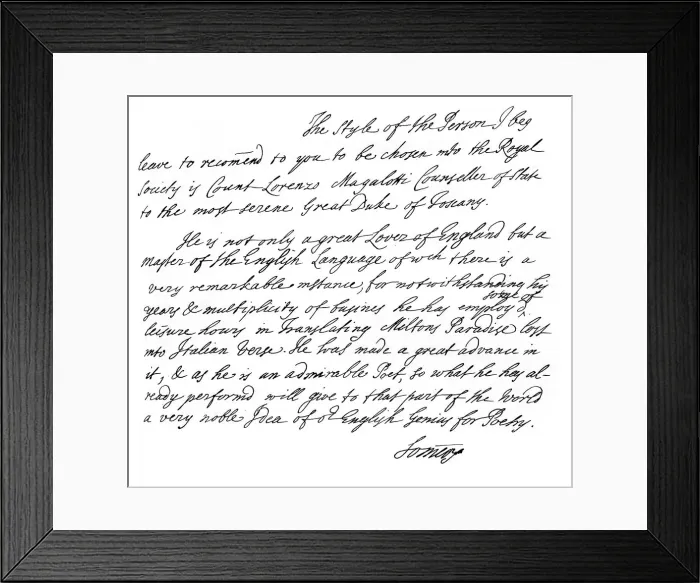 The Style of the Person I beg
leave to recom̄end to you to be chosen into the Royal
Society is Count Lorenzo Magalotti Counseller of State
to the most serene Great Duke of Toscany.
He is not only a great Lover of England but a
master of the English Language of wch there is a
very remarkable instance, for notwithstanding his
years & multiplicity of busines he has employ'd
some of
leisure hours in Translating Miltons Paradise lost
into Italian Verse. He has made a great advance in
it, & as he is an admirable Poet, so what he has al-
ready performd will give to that part of the World
a very noble Idea of or English Genius for Poetry.
Somers